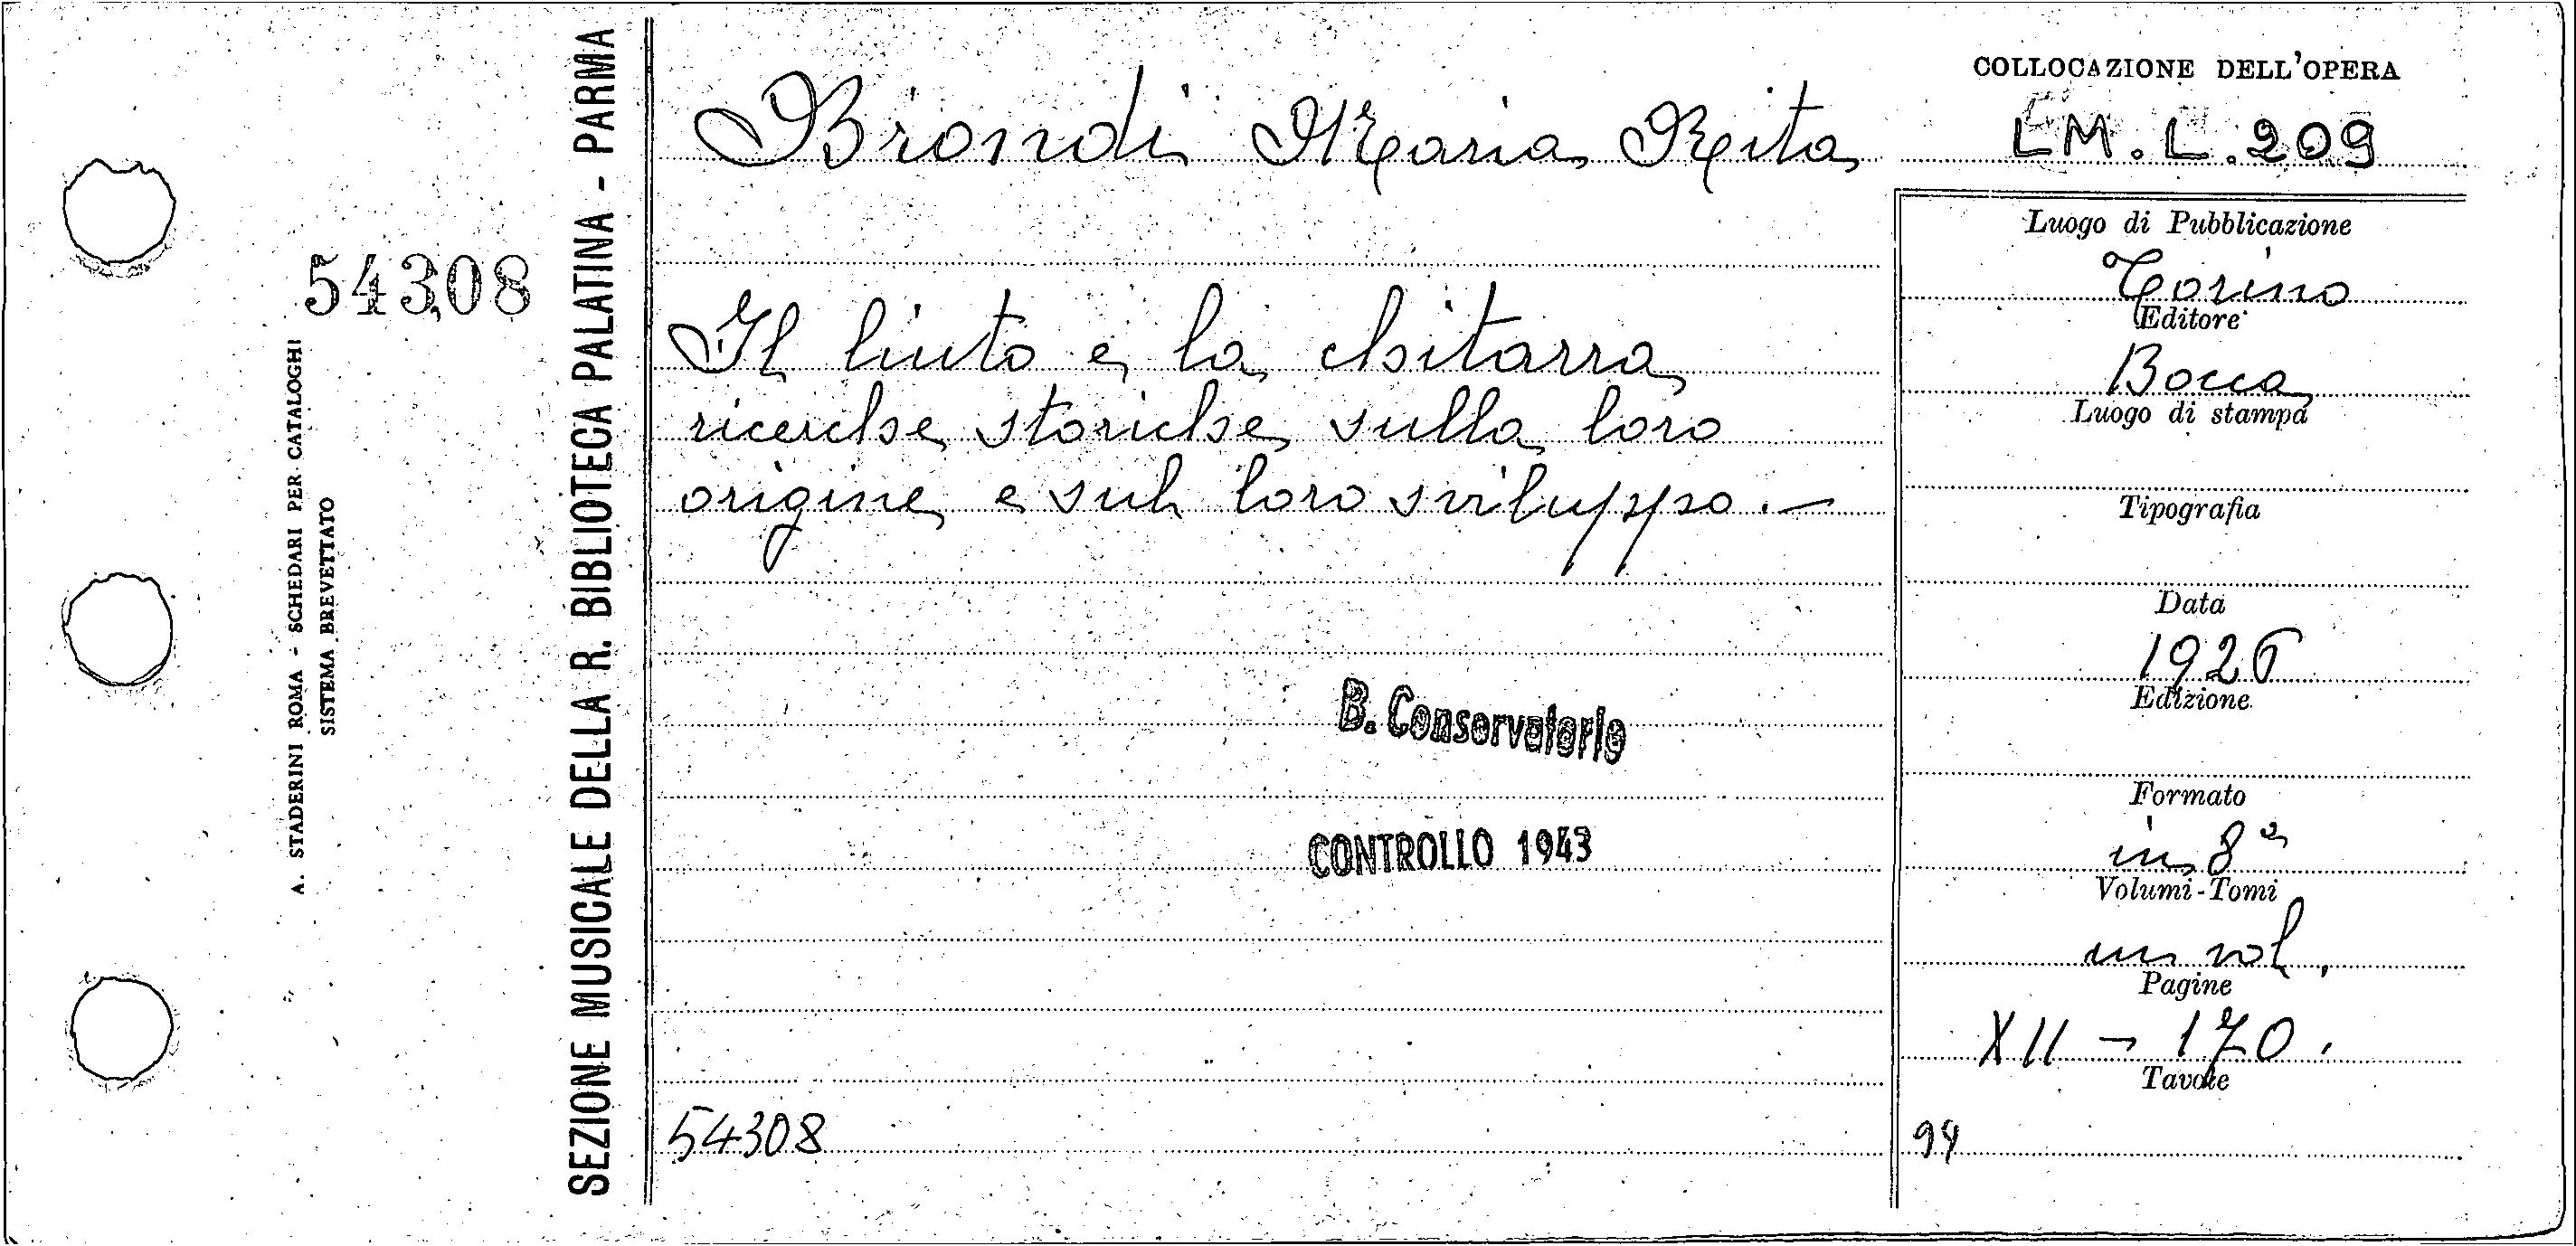 54308
A. STADERINI ROMA - SCHEDARI PER CATALOGHI
SISTEMA BREVETTATO
SEZIONE MUSICALE DELLA R. BIBLIOTECA PALATINA - PARMA
Brondi Maria Rita
Il liuto e la chitarra
ricerche storiche sulla loro
origine e sul loro sviluppo. —
B. Conservatorio
CONTROLLO 1943
54308
COLLOCAZIONE DELL'OPERA
LM. L. 209
Luogo di Pubblicazione
Torino
Editore
Bocca
Luogo di stampa
Tipografia
Data
1926
Edizione
Formato
in 8°
Volumi-Tomi
un vol.
Pagine
XII - 170.
Tavole
94